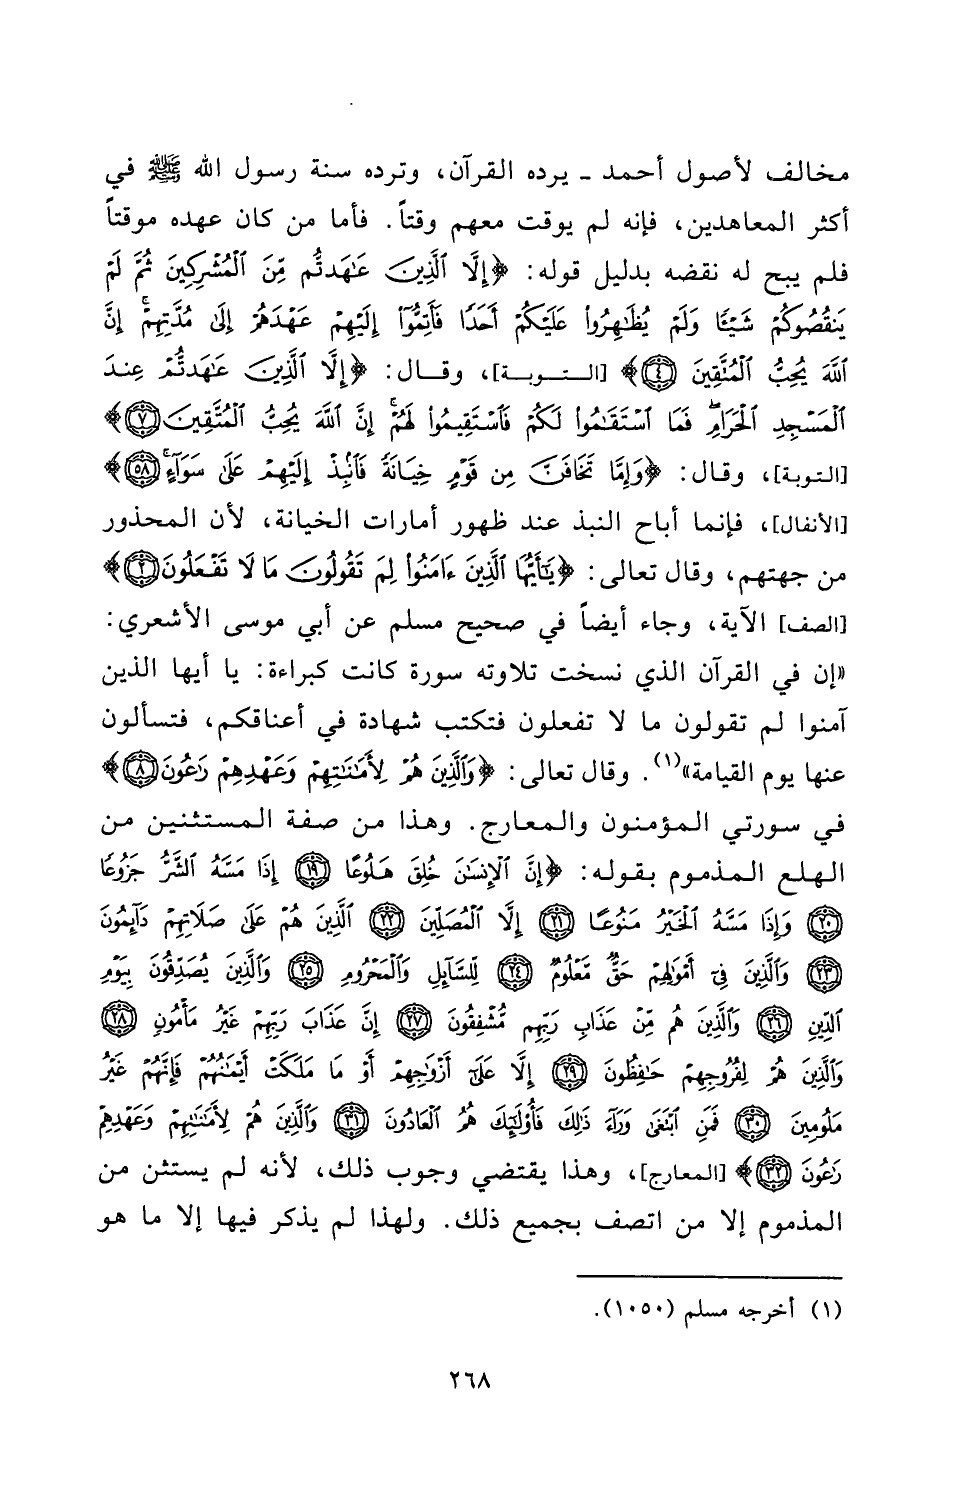 مخالف لأصول أحمد ـ يرده القرآن، وترده سنة رسول الله ﷺ في
أكثر المعاهدين، فإنه لم يوقت معهم وقتاً. فأما من كان عهده موقتاً
فلم يبح له نقضه بدليل قوله: ﴿إِلَّا ٱلَّذِينَ عَٰهَدتُّم مِّنَ ٱلْمُشْرِكِينَ ثُمَّ لَمْ
يَنقُصُوكُمْ شَيْـًٔا وَلَمْ يُظَٰهِرُوا۟ عَلَيْكُمْ أَحَدًا فَأَتِمُّوٓا۟ إِلَيْهِمْ عَهْدَهُمْ إِلَىٰ مُدَّتِهِمْ ۚ إِنَّ
ٱللَّهَ يُحِبُّ ٱلْمُتَّقِينَ ﴿٤﴾﴾ [التوبة]، وقال: ﴿إِلَّا ٱلَّذِينَ عَٰهَدتُّمْ عِندَ
ٱلْمَسْجِدِ ٱلْحَرَامِ ۖ فَمَا ٱسْتَقَٰمُوا۟ لَكُمْ فَٱسْتَقِيمُوا۟ لَهُمْ ۚ إِنَّ ٱللَّهَ يُحِبُّ ٱلْمُتَّقِينَ ﴿٧﴾﴾
[التوبة]، وقال: ﴿وَإِمَّا تَخَافَنَّ مِن قَوْمٍ خِيَانَةً فَٱنۢبِذْ إِلَيْهِمْ عَلَىٰ سَوَآءٍ ۚ ﴿٥٨﴾﴾
[الأنفال]، فإنما أباح النبذ عند ظهور أمارات الخيانة، لأن المحذور
من جهتهم، وقال تعالى: ﴿يَٰٓأَيُّهَا ٱلَّذِينَ ءَامَنُوا۟ لِمَ تَقُولُونَ مَا لَا تَفْعَلُونَ ﴿٢﴾﴾
[الصف] الآية، وجاء أيضاً في صحيح مسلم عن أبي موسى الأشعري:
«إن في القرآن الذي نسخت تلاوته سورة كانت كبراءة: يا أيها الذين
آمنوا لم تقولون ما لا تفعلون فتكتب شهادة في أعناقكم، فتسألون
عنها يوم القيامة»(١). وقال تعالى: ﴿وَٱلَّذِينَ هُمْ لِأَمَٰنَٰتِهِمْ وَعَهْدِهِمْ رَٰعُونَ ﴿٨﴾﴾
في سورتي المؤمنون والمعارج. وهذا من صفة المستثنين من
الهلع المذموم بقوله: ﴿إِنَّ ٱلْإِنسَٰنَ خُلِقَ هَلُوعًا ﴿١٩﴾ إِذَا مَسَّهُ ٱلشَّرُّ جَزُوعًا
﴿٢٠﴾ وَإِذَا مَسَّهُ ٱلْخَيْرُ مَنُوعًا ﴿٢١﴾ إِلَّا ٱلْمُصَلِّينَ ﴿٢٢﴾ ٱلَّذِينَ هُمْ عَلَىٰ صَلَاتِهِمْ دَآئِمُونَ
﴿٢٣﴾ وَٱلَّذِينَ فِىٓ أَمْوَٰلِهِمْ حَقٌّ مَّعْلُومٌ ﴿٢٤﴾ لِّلسَّآئِلِ وَٱلْمَحْرُومِ ﴿٢٥﴾ وَٱلَّذِينَ يُصَدِّقُونَ بِيَوْمِ
ٱلدِّينِ ﴿٢٦﴾ وَٱلَّذِينَ هُم مِّنْ عَذَابِ رَبِّهِم مُّشْفِقُونَ ﴿٢٧﴾ إِنَّ عَذَابَ رَبِّهِمْ غَيْرُ مَأْمُونٍ ﴿٢٨﴾
وَٱلَّذِينَ هُمْ لِفُرُوجِهِمْ حَٰفِظُونَ ﴿٢٩﴾ إِلَّا عَلَىٰٓ أَزْوَٰجِهِمْ أَوْ مَا مَلَكَتْ أَيْمَٰنُهُمْ فَإِنَّهُمْ غَيْرُ
مَلُومِينَ ﴿٣٠﴾ فَمَنِ ٱبْتَغَىٰ وَرَآءَ ذَٰلِكَ فَأُو۟لَٰٓئِكَ هُمُ ٱلْعَادُونَ ﴿٣١﴾ وَٱلَّذِينَ هُمْ لِأَمَٰنَٰتِهِمْ وَعَهْدِهِمْ
رَٰعُونَ ﴿٣٢﴾﴾ [المعارج]، وهذا يقتضي وجوب ذلك، لأنه لم يستثن من
المذموم إلا من اتصف بجميع ذلك. ولهذا لم يذكر فيها إلا ما هو
(١) أخرجه مسلم (١٠٥٠).
٢٦٨